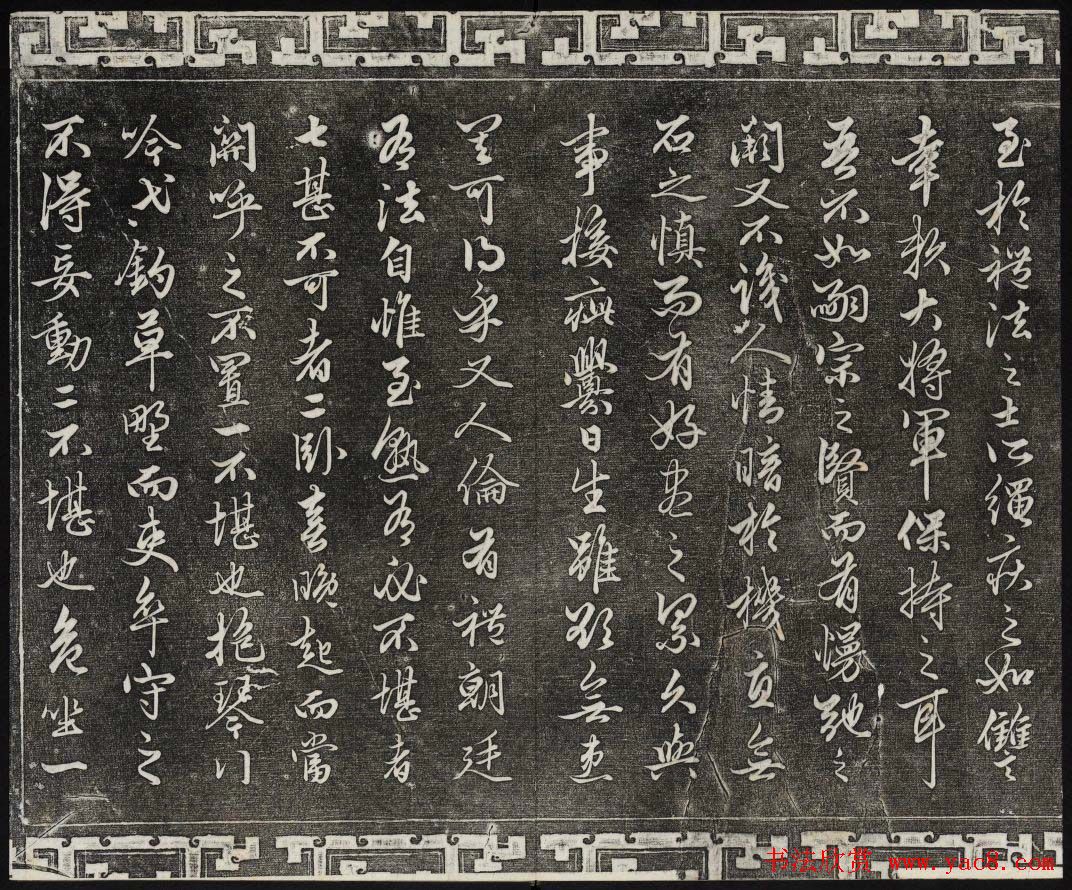 至於禮法之士所繩疾之如讎
幸賴大將軍保持之耳
吾不如嗣宗之賢而有慢弛之
闕又不識人情暗於機宜無
石之慎而有好盡之累久與
事接疵釁日生雖欲無患
其可得乎又人倫有禮朝廷
有法自惟至熟有必不堪者
七甚不可者二卧喜晚起而當
關呼之不置一不堪也抱琴行
吟弋釣草野而吏卒守之
不得妄動二不堪也危坐一
书法欣赏 www.yac8.com